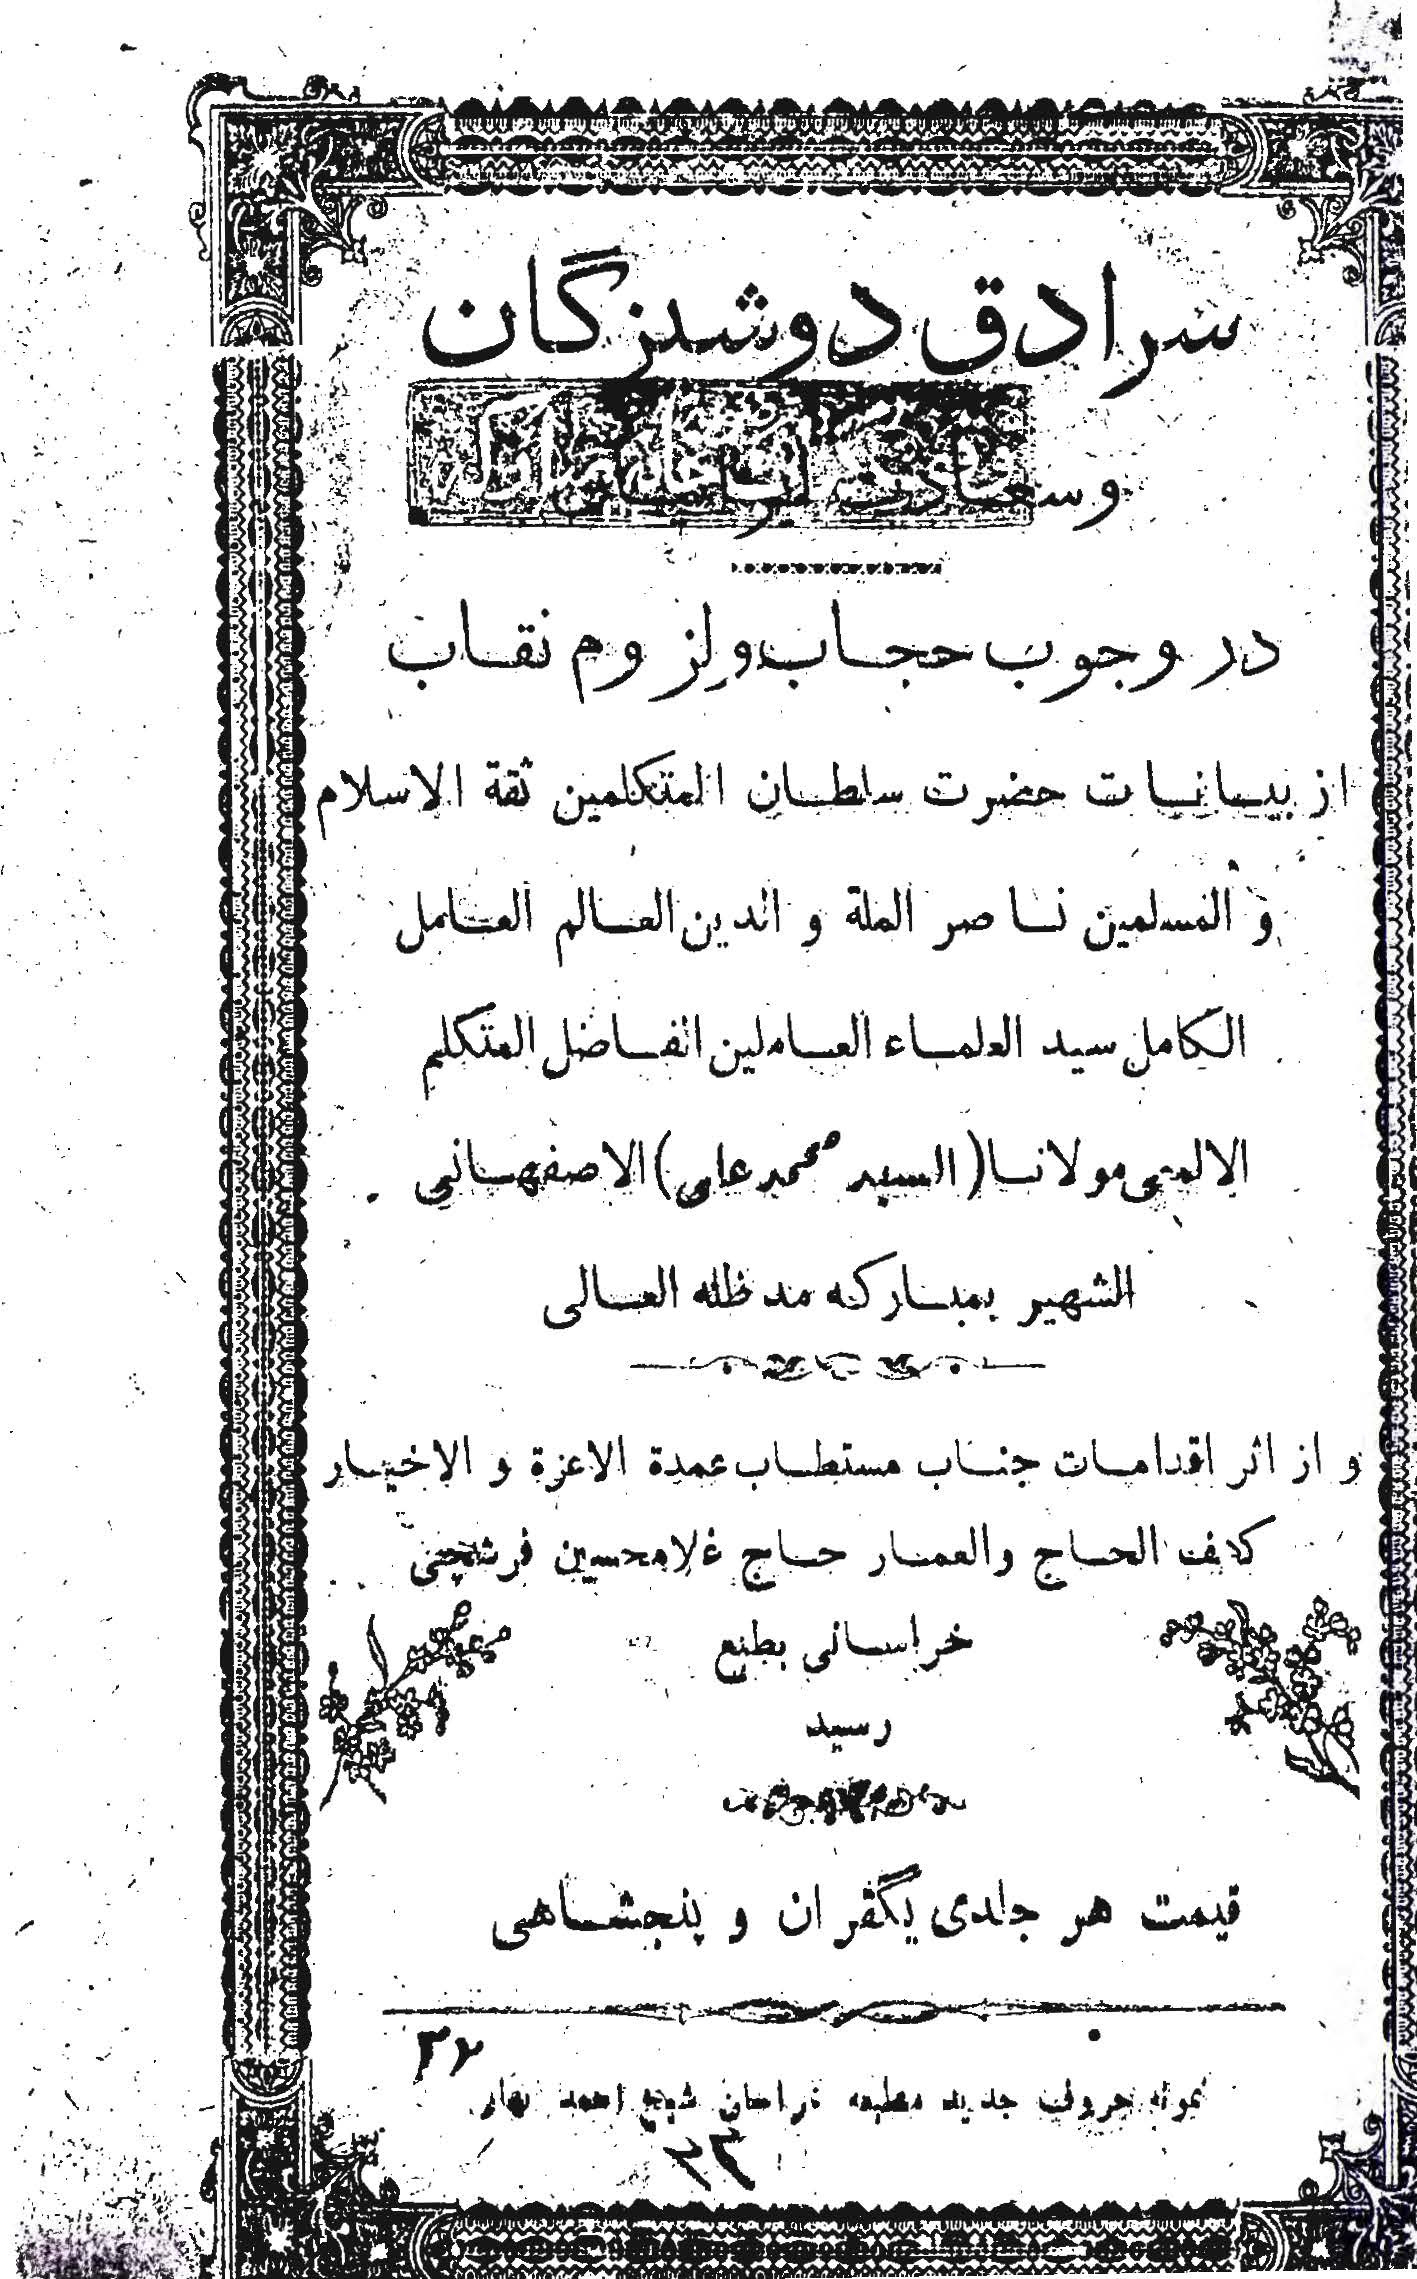 سرادق دوشیزگان
وسعادت
در وجوب حجاب ولزوم نقاب
از بیانات حضرت سلطان المتکلمین ثقة الاسلام
و المسلمین ناصر الملة و الدین العالم العامل
الکامل سید العلماء العاملین الفاضل المتکلم
الالمعی مولانا (السید محمد علی) الاصفهانی
الشهیر بمبارکه مد ظله العالی
و از اثر اقدامات جناب مستطاب عمدة الاعزة و الاخیار
کلایف الحاج والعمار حاج غلامحسین فرشچی
خراسانی بطبع
رسید
قیمت هر جلدی یکقران و پنجشاهی
۳۲
نمونه حروف جدید مطبعه خراسان شیخ احمد بهار